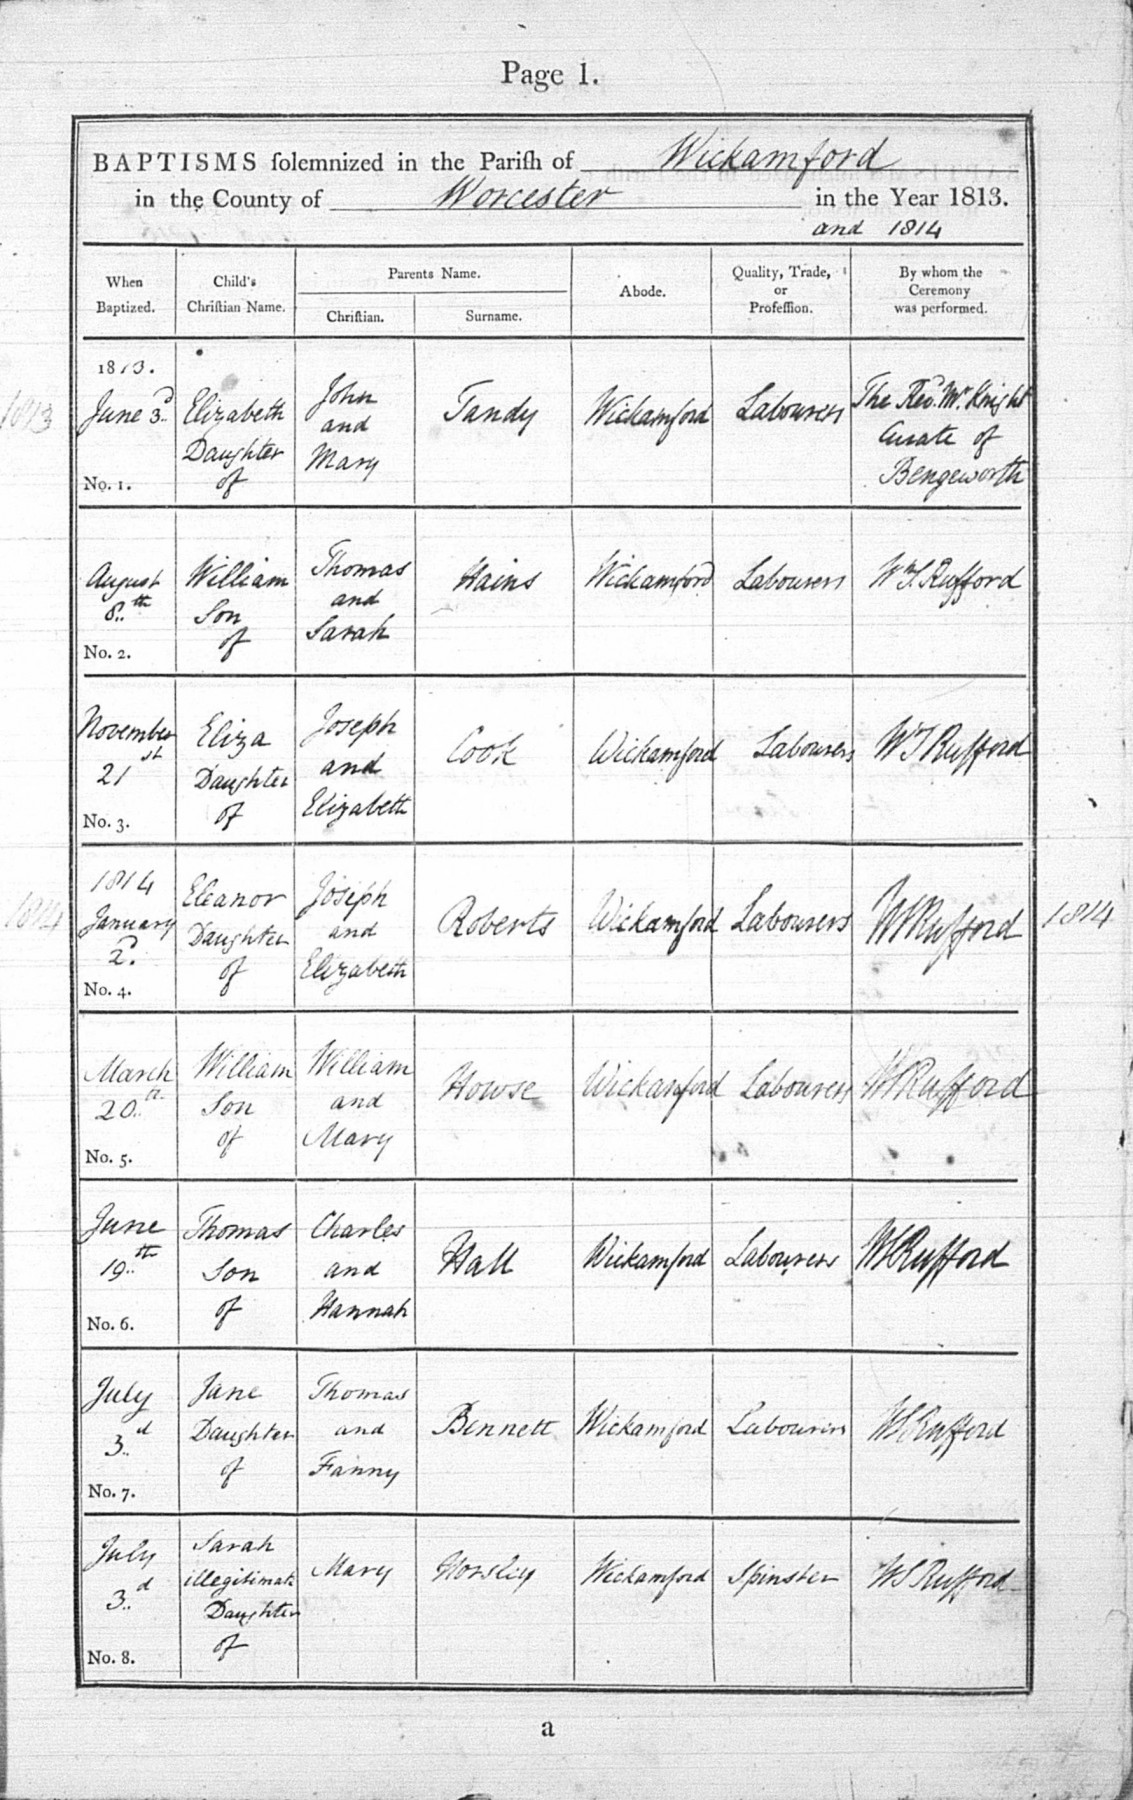 Page 1.
BAPTISMS solemnized in the Parish of Wickamford
in the County of Worcester in the Year 1813.
and 1814
When Baptized.
Child's Christian Name.
Parents Name.
Christian.
Surname.
Abode.
Quality, Trade, or Profession.
By whom the Ceremony was performed.
1813
1813.
June 3d
No. 1.
Elizabeth
Daughter
of
John
and
Mary
Tandy
Wickamford
Labourers
The Revd. Mr. Knight
Curate of
Bengeworth
August
8th
No. 2.
William
Son
of
Thomas
and
Sarah
Hains
Wickamford
Labourers
Rufford
November
21st
No. 3.
Eliza
Daughter
of
Joseph
and
Elizabeth
Cook
Wickamford
Labourers
Rufford
1814
1814
January
2d.
No. 4.
Eleanor
Daughter
of
Joseph
and
Elizabeth
Roberts
Wickamford
Labourers
Rufford
1814
March
20th
No. 5.
William
Son
of
William
and
Mary
Howse
Wickamford
Labourers
Rufford
June
19th
No. 6.
Thomas
Son
of
Charles
and
Hannah
Hall
Wickamford
Labourers
Rufford
July
3d
No. 7.
Jane
Daughter
of
Thomas
and
Fanny
Bennett
Wickamford
Labourers
WS Rufford
July
3d
No. 8.
Sarah
illegitimate
Daughter
of
Mary
Horsley
Wickamford
Spinster
WS Rufford
a